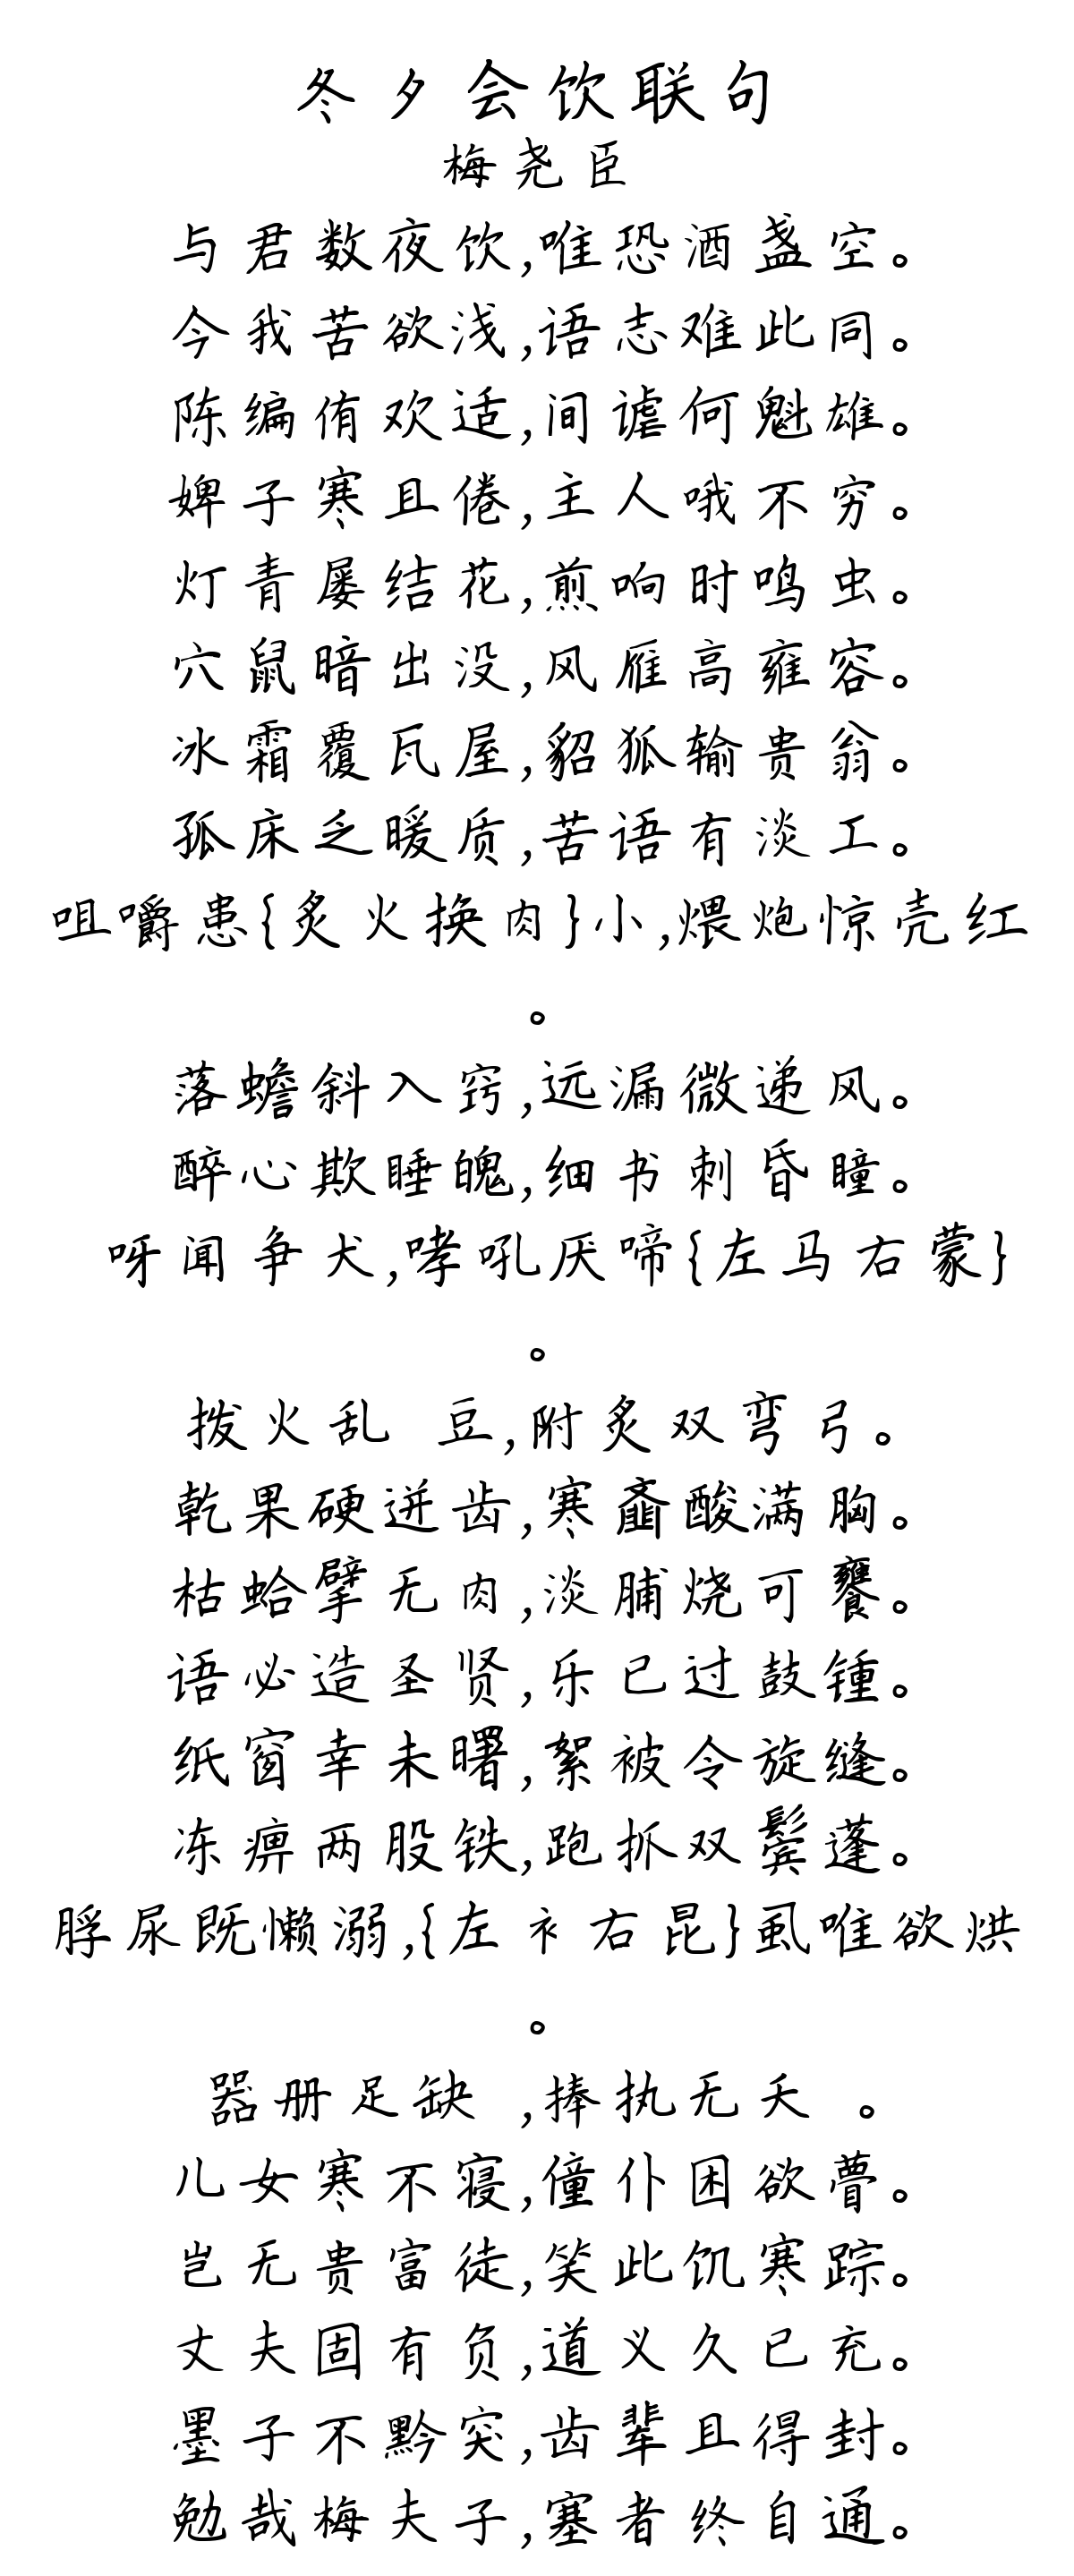 冬夕会饮联句
梅尧臣
与君数夜饮,唯恐酒盏空。
今我苦欲浅,语志难此同。
陈编侑欢适,间谑何魁雄。
婢子寒且倦,主人哦不穷。
灯青屡结花,煎响时鸣虫。
穴鼠暗出没,风雁高雍容。
冰霜覆瓦屋,貂狐输贵翁。
孤床乏暖质,苦语有淡工。
咀嚼患{炙火换肉}小,煨炮惊壳红
。
落蟾斜入窍,远漏微递风。
醉心欺睡魄,细书刺昏瞳。
呀闻争犬,哮吼厌啼{左马右蒙}
。
拨火乱 豆,附炙双弯弓。
乾果硬迸齿,寒齑酸满胸。
枯蛤擘无肉,淡脯烧可饔。
语必造圣贤,乐已过鼓锺。
纸窗幸未曙,絮被令旋缝。
冻痹两股铁,跑抓双鬓蓬。
脬尿既懒溺,{左衤右昆}虱唯欲烘
。
器册足缺 ,捧执无夭 。
儿女寒不寝,僮仆困欲瞢。
岂无贵富徒,笑此饥寒踪。
丈夫固有负,道义久已充。
墨子不黔突,齿辈且得封。
勉哉梅夫子,塞者终自通。